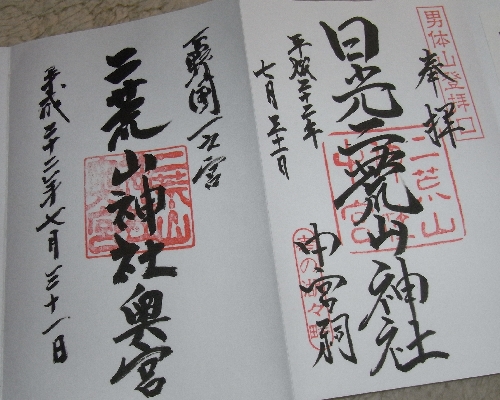 奉拝
男体山登拝口
日光二荒山神社
中宮祠
平成二十二年
七月三十一日
下野国一之宮
二荒山神社奥宮
平成二十二年七月三十一日